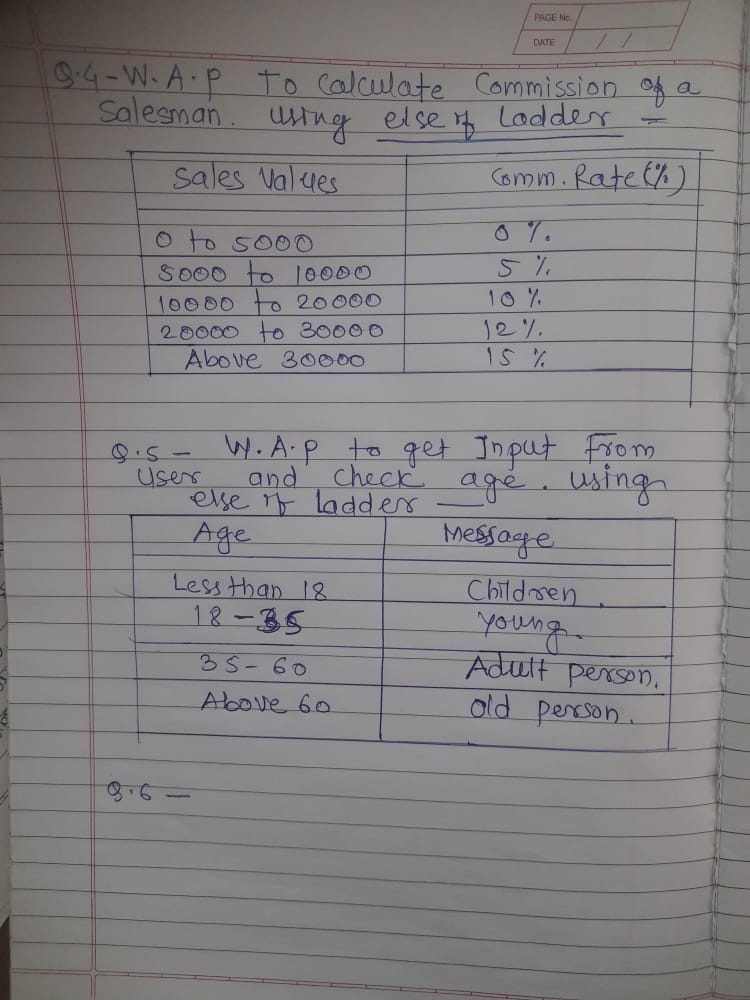 PAGE No.
DATE / /
Q.4 - W.A.P To Calculate Commission of a
Salesman. using else if Ladder -
Sales Values Comm. Rate (%)
0 to 5000 0 %.
5000 to 10000 5 %
10000 to 20000 10 %.
20000 to 30000 12 %.
Above 30000 15 %
Q.5 - W.A.P to get Input from
User and check age. using
else if ladder -
Age Message
Less than 18 Children.
18 - 35 Young.
35 - 60 Adult person.
Above 60 old person.
Q.6 -